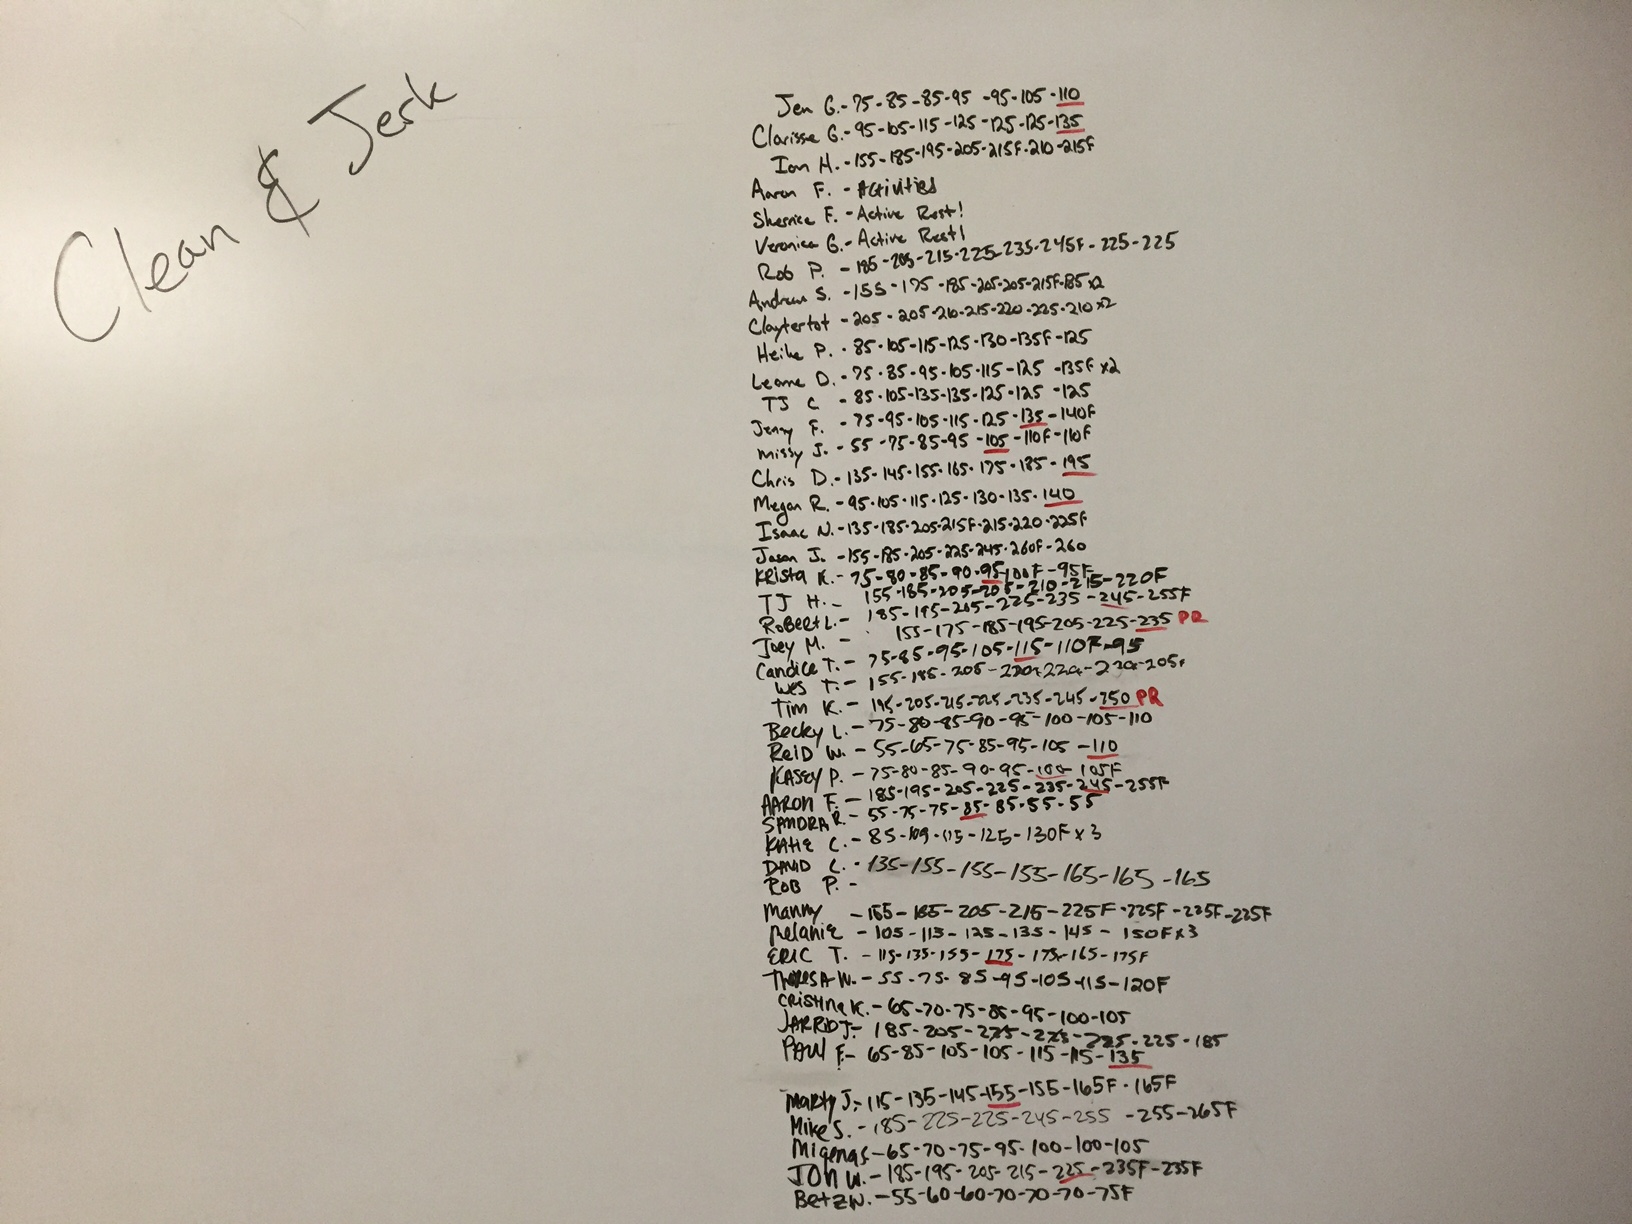 Clean & Jerk
Jen G. - 75 - 85 - 85 - 95 - 95 - 105 - 110
Clarisse G. - 95 - 105 - 115 - 125 - 125 - 125 - 135
Ian H. - 155 - 185 - 195 - 205 - 215F - 210 - 215F
Aaron F. - Activities
Sherrice F. - Active Rest!
Veronica G. - Active Rest!
Rob P. - 185 - 205 - 215 - 225 - 235 - 245F - 225 - 225
Andrew S. - 155 - 175 - 185 - 205 - 205 - 215F - 185 x2
Claytertot - 205 - 205 - 210 - 215 - 220 - 225 - 210 x2
Heike P. - 85 - 105 - 115 - 125 - 130 - 135F - 125
Leanne D. - 75 - 85 - 95 - 105 - 115 - 125 - 135F x2
TJ C - 85 - 105 - 135 - 135 - 125 - 125 - 125
Jenny F. - 75 - 95 - 105 - 115 - 125 - 135 - 140F
Missy J. - 55 - 75 - 85 - 95 - 105 - 110F - 110F
Chris D. - 135 - 145 - 155 - 165 - 175 - 185 - 195
Megan R. - 95 - 105 - 115 - 125 - 130 - 135 - 140
Isaac N. - 135 - 185 - 205 - 215F - 215 - 220 - 225F
Jason J. - 155 - 185 - 205 - 225 - 245 - 260F - 260
Krista K. - 75 - 80 - 85 - 90 - 95 - 100F - 95F
TJ H. - 155 - 185 - 205 - 205 - 210 - 215 - 220F
Robert L. - 185 - 195 - 205 - 225 - 235 - 245 - 255F
Joey M. - 155 - 175 - 185 - 195 - 205 - 225 - 235 PR
Candice T. - 75 - 85 - 95 - 105 - 115 - 110F - 95
Wes T. - 155 - 185 - 205 - 205F
Tim K. - 195 - 205 - 215 - 225 - 235 - 245 - 250 PR
Becky L. - 75 - 80 - 85 - 90 - 95 - 100 - 105 - 110
Reid W. - 55 - 65 - 75 - 85 - 95 - 105 - 110
Kasey P. - 75 - 80 - 85 - 90 - 95 - 100 - 105F
Aaron F. - 185 - 195 - 205 - 225 - 235 - 245 - 255F
Sandra R. - 55 - 75 - 75 - 85 - 85 - 55 - 55
Katie C. - 85 - 115 - 125 - 130F x 3
David C. - 135 - 155 - 155 - 155 - 165 - 165 - 165
Rob P. -
Manny - 155 - 185 - 205 - 215 - 225F - 225F - 225F - 225F
Melanie - 105 - 115 - 125 - 135 - 145 - 150F x 3
Eric T. - 115 - 135 - 155 - 175 - 175 - 165 - 175F
Theresa W. - 55 - 75 - 85 - 95 - 105 - 115 - 120F
Cristina K. - 65 - 70 - 75 - 85 - 95 - 100 - 105
Jarrid J. - 185 - 205 - 225 - 225 - 225 - 225 - 185
Paul F. - 65 - 85 - 105 - 105 - 115 - 115 - 135
Marty J. - 115 - 135 - 145 - 155 - 155 - 165F - 165F
Mike S. - 185 - 225 - 225 - 245 - 255 - 255 - 265F
Migenas - 65 - 70 - 75 - 95 - 100 - 100 - 105
Jon W. - 185 - 195 - 205 - 215 - 225 - 235F - 235F
Betz W. - 55 - 60 - 60 - 70 - 70 - 70 - 75F